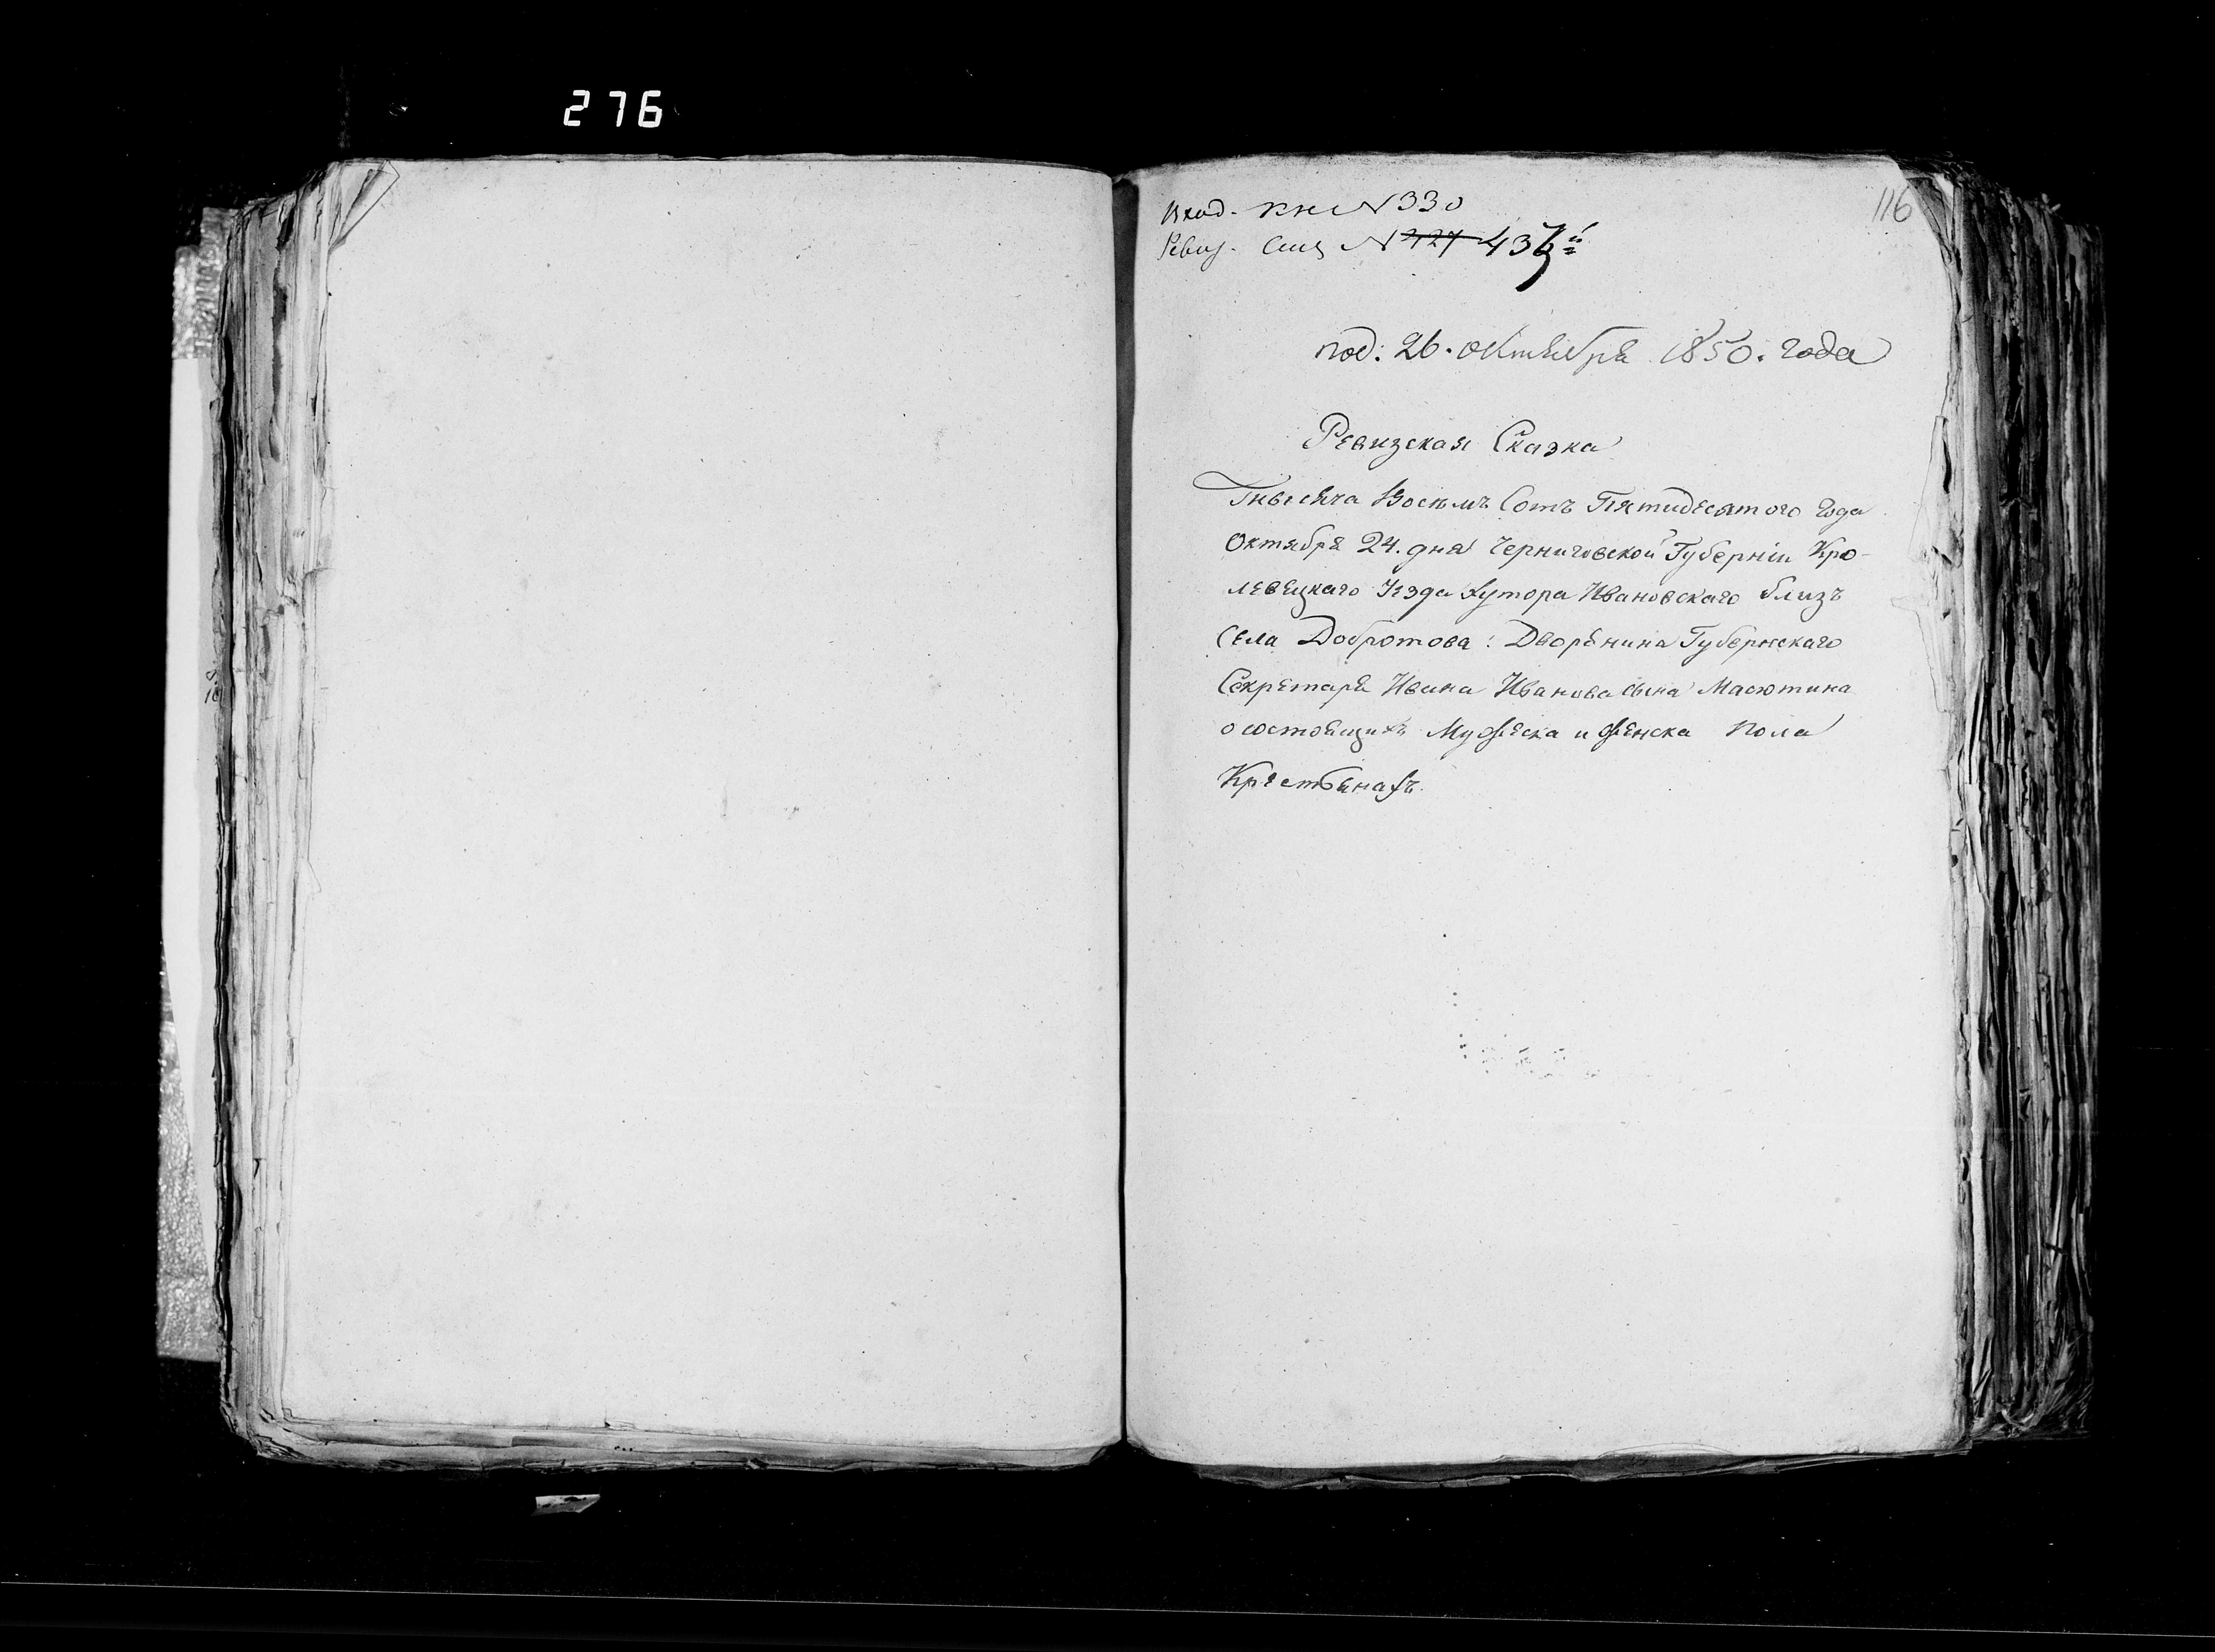 276
116
Вход. кн N 330
Ревиз. Спис N 227 436й
под: 26. октября 1850. года
Ревизская Сказка
Тысяча Восемъ Сотъ Пятидесятого года
Октября 24. дня Черниговской Губерніи Кро-
левецкаго Уезда Хутора Ивановскаго близъ
Села Добротова: Дворянина Губернскаго
Секретаря Ивана Иванова сына Масютина
о состоящихъ Мужеска и женска пола
Крестьянахъ.